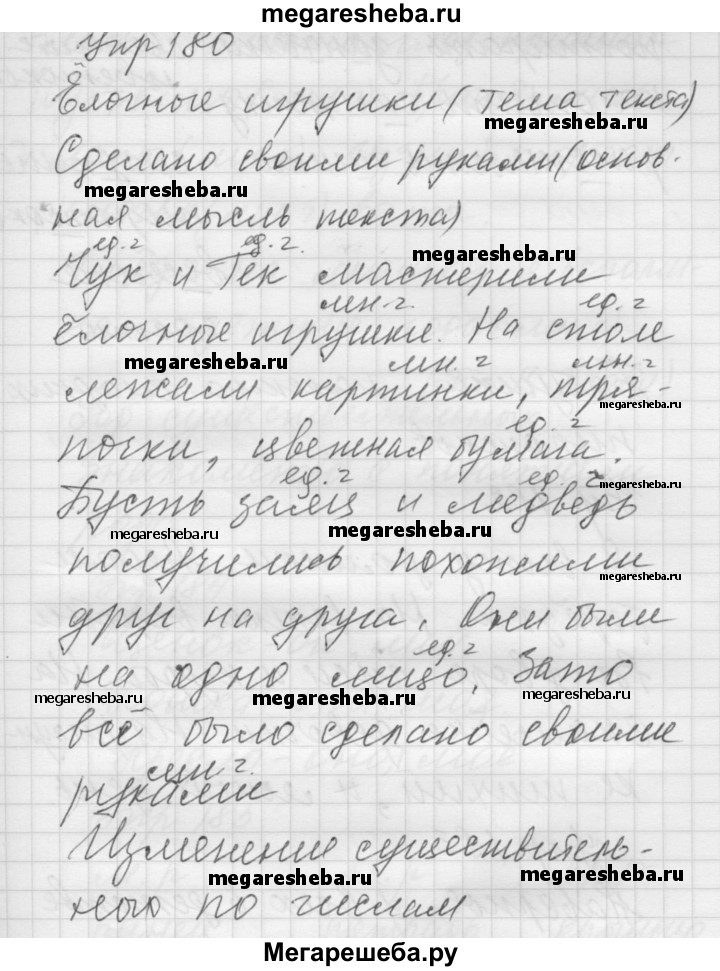 megaresheba.ru
Упр 180
Ёлочные игрушки (тема текста)
megaresheba.ru
Сделано своими руками (основ-
megaresheba.ru
ная мысль текста)
ед.ч ед.ч.
megaresheba.ru
Чук и Гек мастерили
мн.ч. ед.ч
ёлочные игрушки. На столе
megaresheba.ru мн.ч мн.ч
лежали картинки, тря-
megaresheba.ru
ед.ч
почки, цветная бумага.
ед.ч ед.ч
megaresheba.ru
Пусть заяц и медведь
megaresheba.ru megaresheba.ru
получились похожими
megaresheba.ru
друг на друга. Они были
ед.ч
на одно лицо. Зато
megaresheba.ru megaresheba.ru megaresheba.ru
всё было сделано своими
мн.ч.
руками
Изменение существитель-
megaresheba.ru megaresheba.ru
ного по числам
Мегарешеба.ру